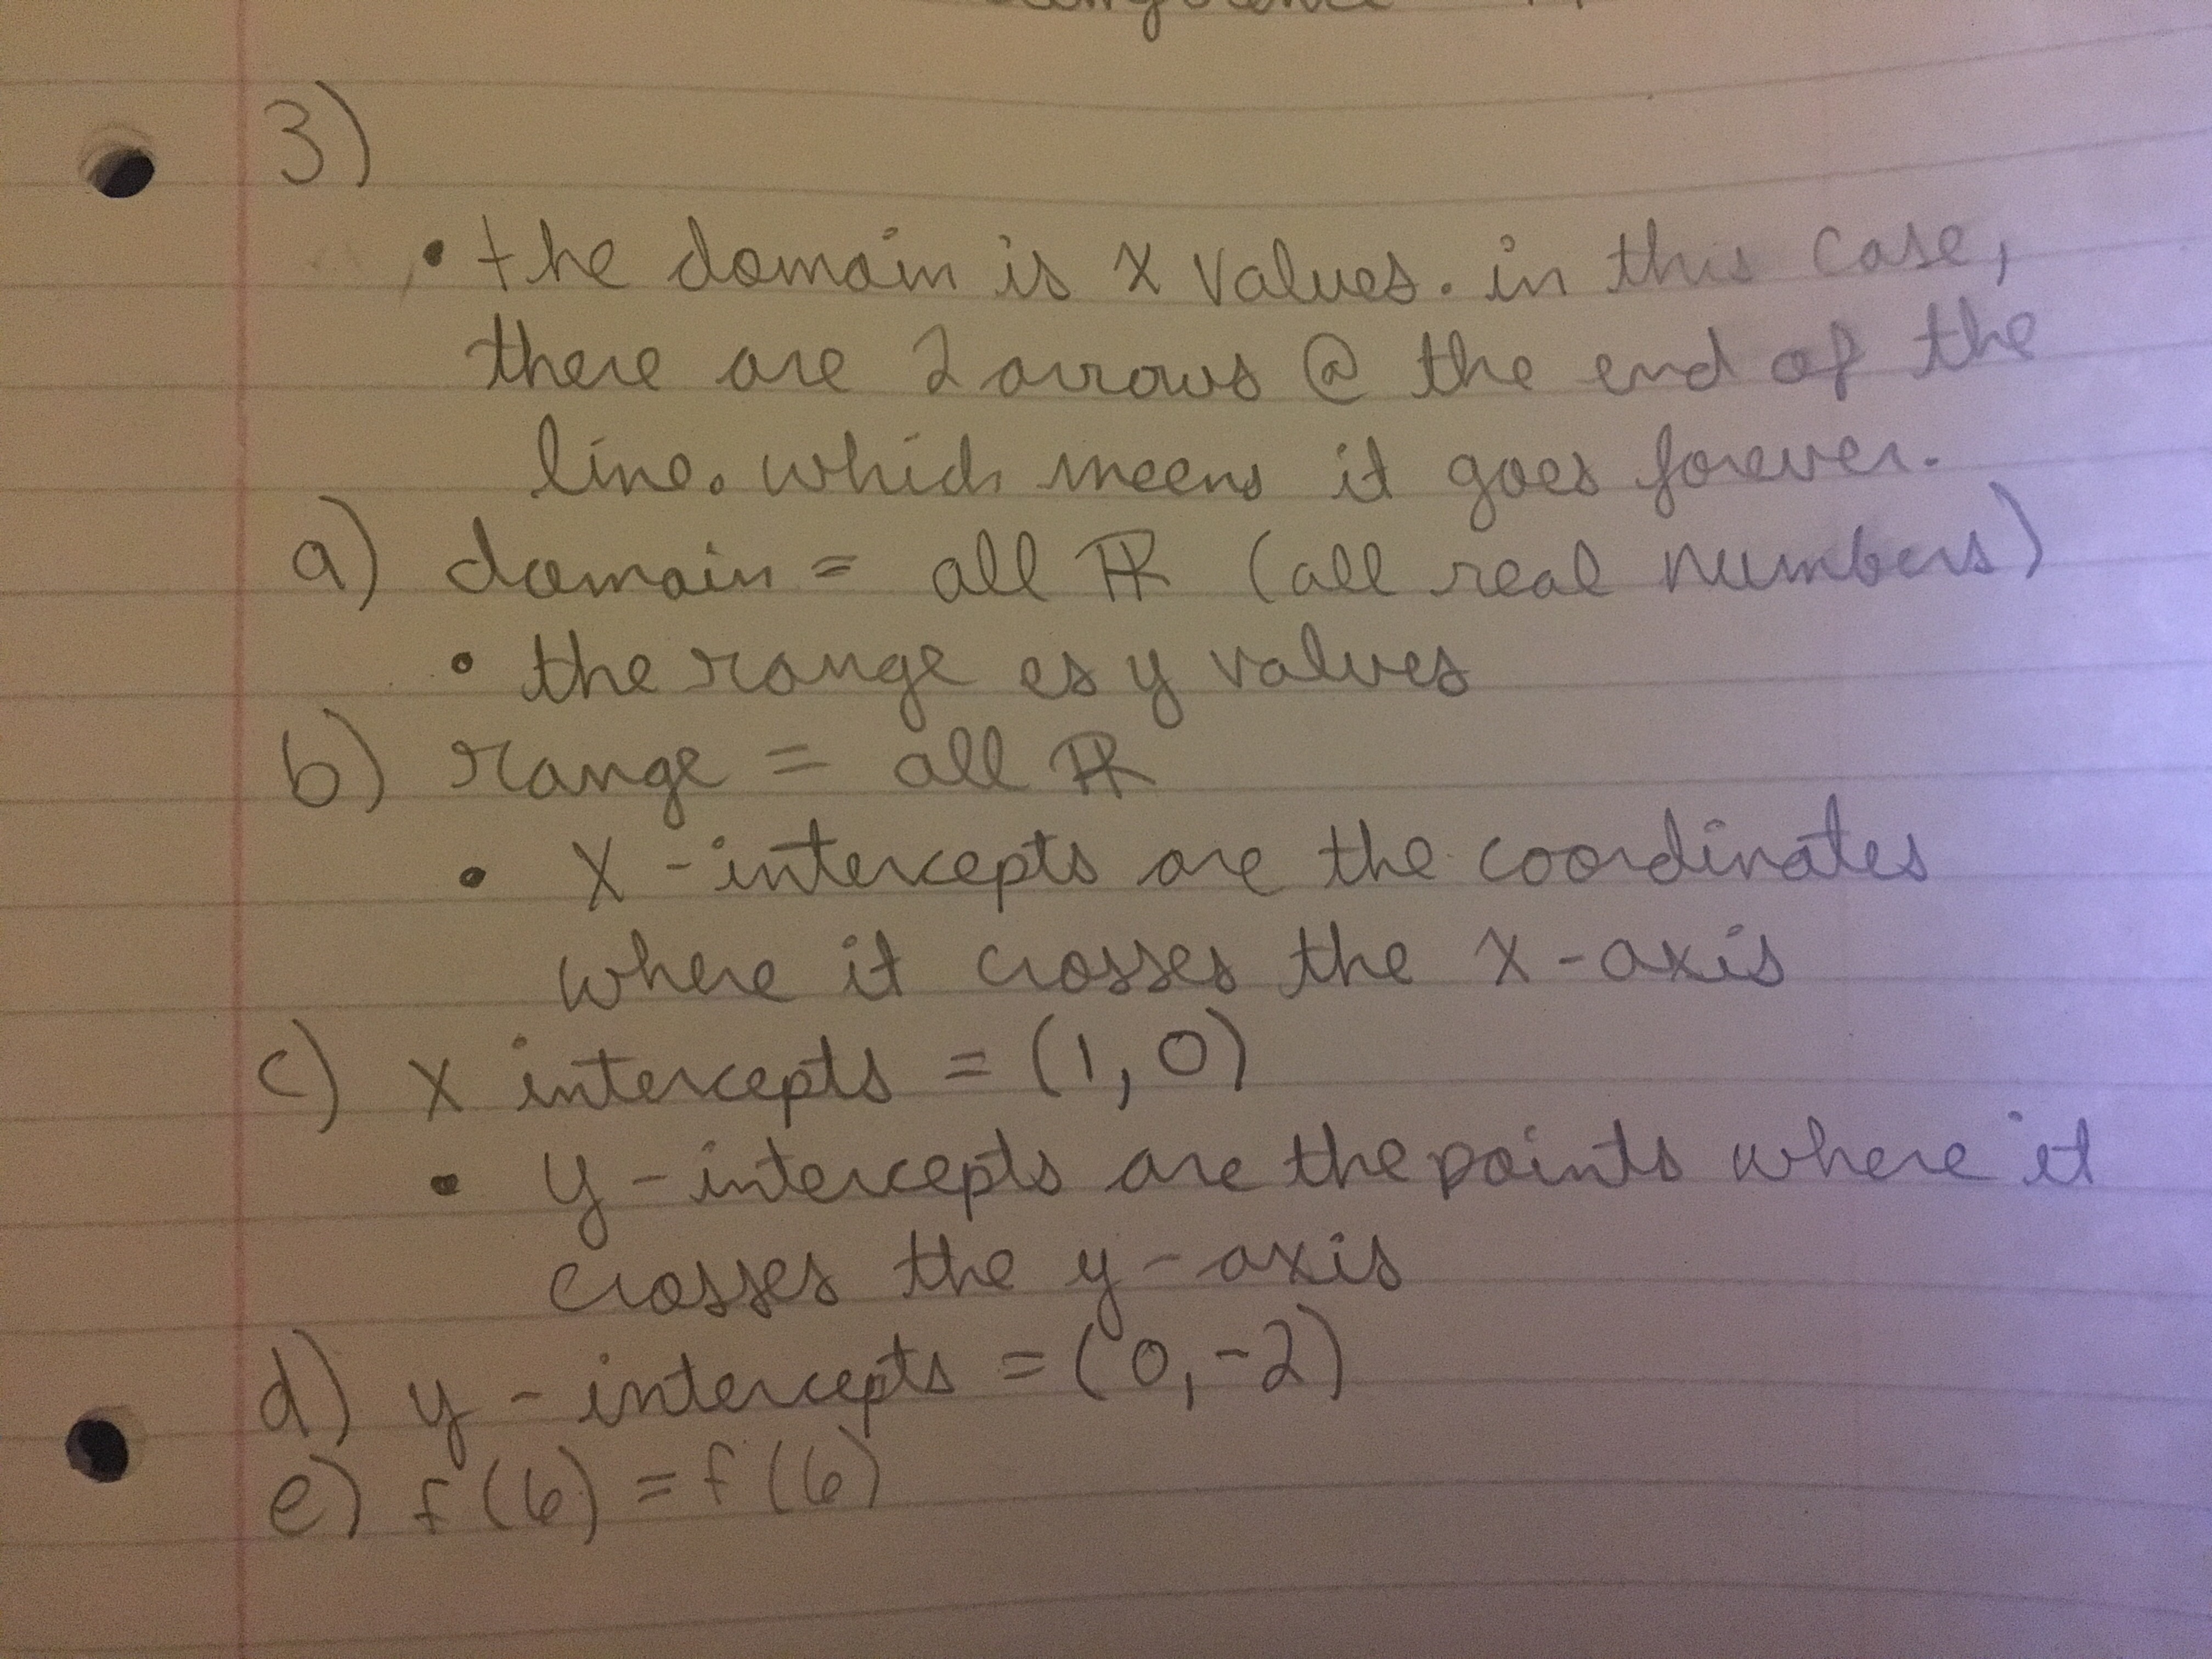 3)
• the domain is x values. in this case,
there are 2 arrows @ the end of the
line. which meens it goes forever.
a) domain = all ℝ (all real numbers)
• the range es y values
b) range = all ℝ
• X-intercepts are the coordinates
where it crosses the x-axis
c) x intercepts = (1, 0)
• y-intercepts are the points where it
crosses the y-axis
d) y-intercepts = (0, -2)
e) f(6) = f(6)